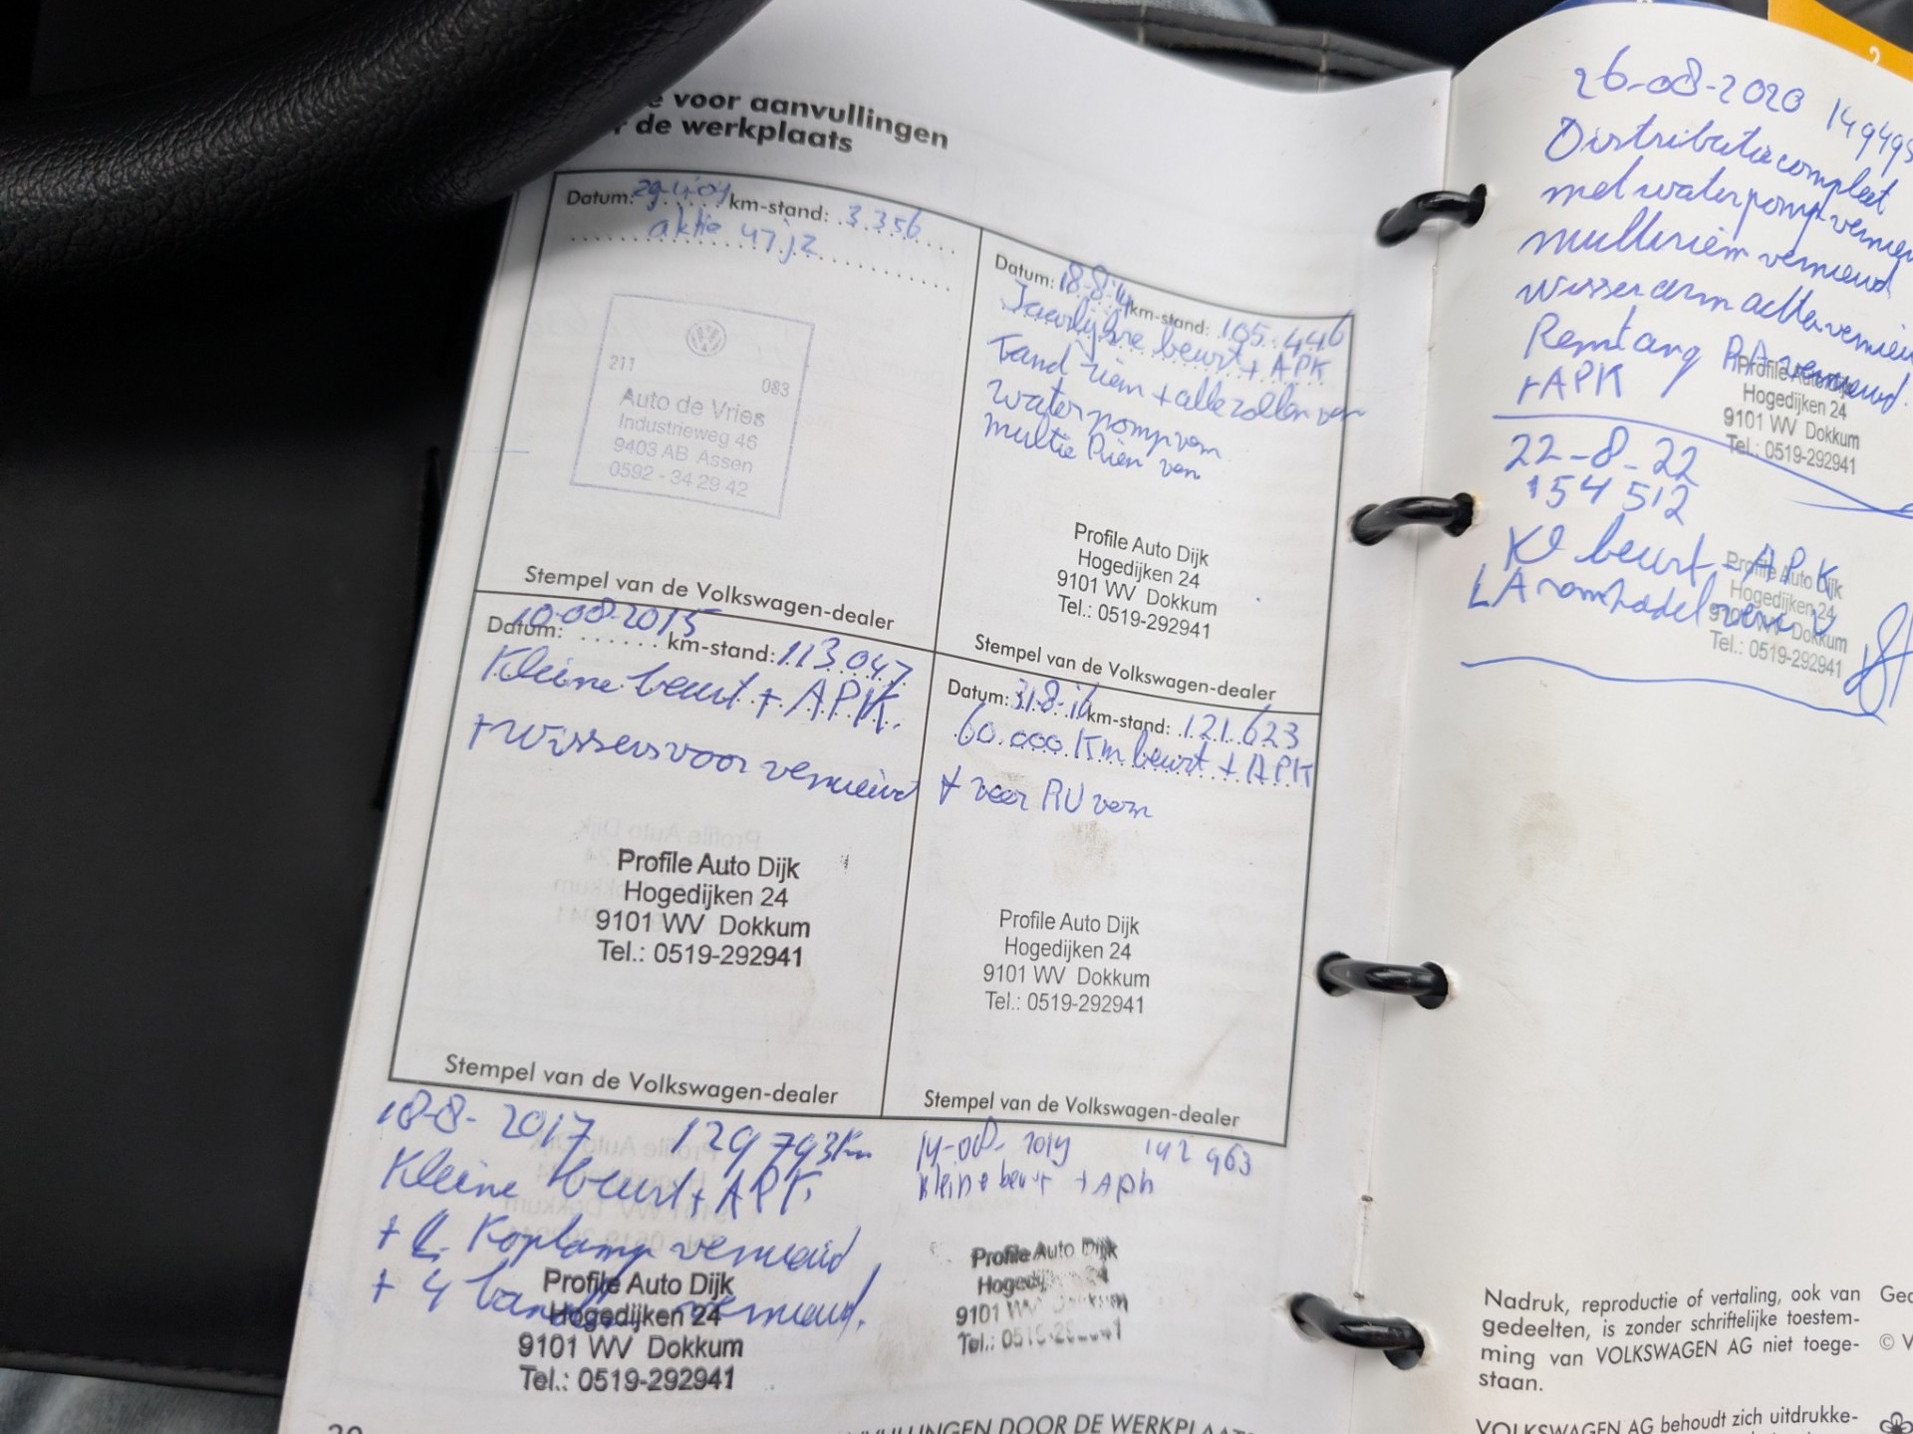 e voor aanvullingen
r de werkplaats
Datum: 29.4.04 km-stand: 3.356
aktie 47j2
211
083
Auto de Vries
Industrieweg 46
9403 AB Assen
0592 - 34 29 42
Stempel van de Volkswagen-dealer
Datum: 18-8-14 km-stand: 105.446
Jaarlijkse beurt + APK
Tand riem + alle rollen vern
waterpomp vern
multie Riem vern
Profile Auto Dijk
Hogedijken 24
9101 WV Dokkum
Tel.: 0519-292941
Stempel van de Volkswagen-dealer
Datum: 10-08-2015 km-stand: 113.047
Kleine beurt + APK.
+ wissers voor vernieuwd
Profile Auto Dijk
Hogedijken 24
9101 WV Dokkum
Tel.: 0519-292941
Stempel van de Volkswagen-dealer
Datum: 31-8-16 km-stand: 121.623
60.000 Km beurt + APK
+ veer RV vern
Profile Auto Dijk
Hogedijken 24
9101 WV Dokkum
Tel.: 0519-292941
Stempel van de Volkswagen-dealer
18-8-2017 129793Km
Kleine beurt + APK
+ L. Koplamp vernieuwd
+ 4 banden vernieuwd.
Profile Auto Dijk
Hogedijken 24
9101 WV Dokkum
Tel.: 0519-292941
14-08-2019 142 963
kleine beurt + APK
Profile Auto Dijk
Hogedijken 24
9101 WV Dokkum
Tel.: 0519-292941
VULLINGEN DOOR DE WERKPLAATS
26-08-2020 149495
Distributie compleet
met waterpomp vernieu
multiriem vernieuwd
wisserarm achter vernieu
Remtang RA vernieuwd.
+ APK
Profile Auto Dijk
Hogedijken 24
9101 WV Dokkum
Tel.: 0519-292941
22-8-22
154 512
Kl beurt - APK
LA remzadel vern
Profile Auto Dijk
Hogedijken 24
9101 WV Dokkum
Tel.: 0519-292941
Nadruk, reproductie of vertaling, ook van
gedeelten, is zonder schriftelijke toestem-
ming van VOLKSWAGEN AG niet toege-
staan.
VOLKSWAGEN AG behoudt zich uitdrukke-
Ged
© V
2